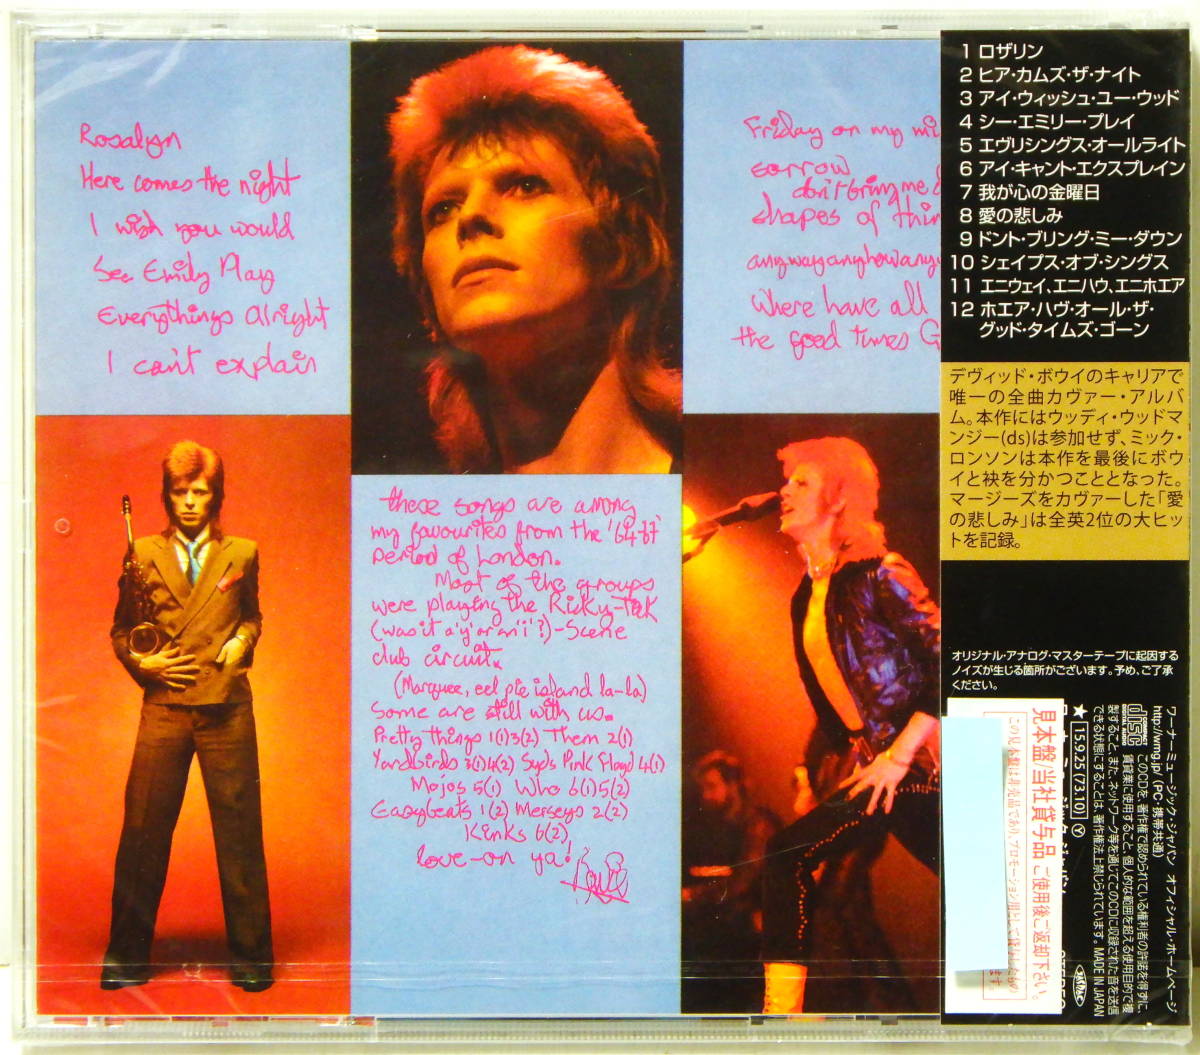 Rosalyn
Here comes the night
I wish you would
See Emily Play
Everythings alright
I can't explain
Friday on my mi
sorrow
don't bring me d
shapes of thin
anyway anyhow any
Where have all
the good times G
these songs are among
my favourites from the '64-67'
period of London.
Most of the groups
were playing the Ricky-Tik
(was it a 'y' or an 'i'?)-Scene
club circuit.
(Marquee, eel pie island la-la)
Some are still with us.
Pretty things 1(1)3(2) Them 2(1)
Yardbirds 3(1)4(2) Syd's Pink Floyd 4(1)
Mojos 5(1) Who 6(1)5(2)
Easybeats 1(2) Merseys 2(2)
Kinks 6(2)
love-on ya!
Bowie
1 ロザリン
2 ヒア・カムズ・ザ・ナイト
3 アイ・ウィッシュ・ユー・ウッド
4 シー・エミリー・プレイ
5 エヴリシングス・オールライト
6 アイ・キャント・エクスプレイン
7 我が心の金曜日
8 愛の悲しみ
9 ドント・ブリング・ミー・ダウン
10 シェイプス・オブ・シングス
11 エニウェイ、エニハウ、エニホエア
12 ホエア・ハヴ・オール・ザ・
グッド・タイムズ・ゴーン
デヴィッド・ボウイのキャリアで
唯一の全曲カヴァー・アルバ
ム。本作にはウッディ・ウッドマ
ンジー(ds)は参加せず、ミック・
ロンソンは本作を最後にボウ
イと袂を分かつこととなった。
マージーズをカヴァーした「愛
の悲しみ」は全英2位の大ヒッ
トを記録。
オリジナル・アナログ・マスターテープに起因する
ノイズが生じる箇所がございます。予め、ご了承
ください。
ワーナーミュージック・ジャパン オフィシャル・ホームページ
http://wmg.jp/ (PC・携帯共通)
COMPACT disc DIGITAL AUDIO
このCDを、著作権で認められている権利者の許諾を得ずに、
賃貸業に使用すること、個人的な範囲を超える使用目的で複
製すること、また、ネットワーク等を通じてこのCDに収録された音を送信
できる状態にすることは、著作権法上禁じられています。MADE IN JAPAN
★ 15.9.25 (73.10) Y
STEREO
見本盤/当社貸与品 ご使用後ご返却下さい。
この見本盤は非売品であり、プロモーション用として
ます